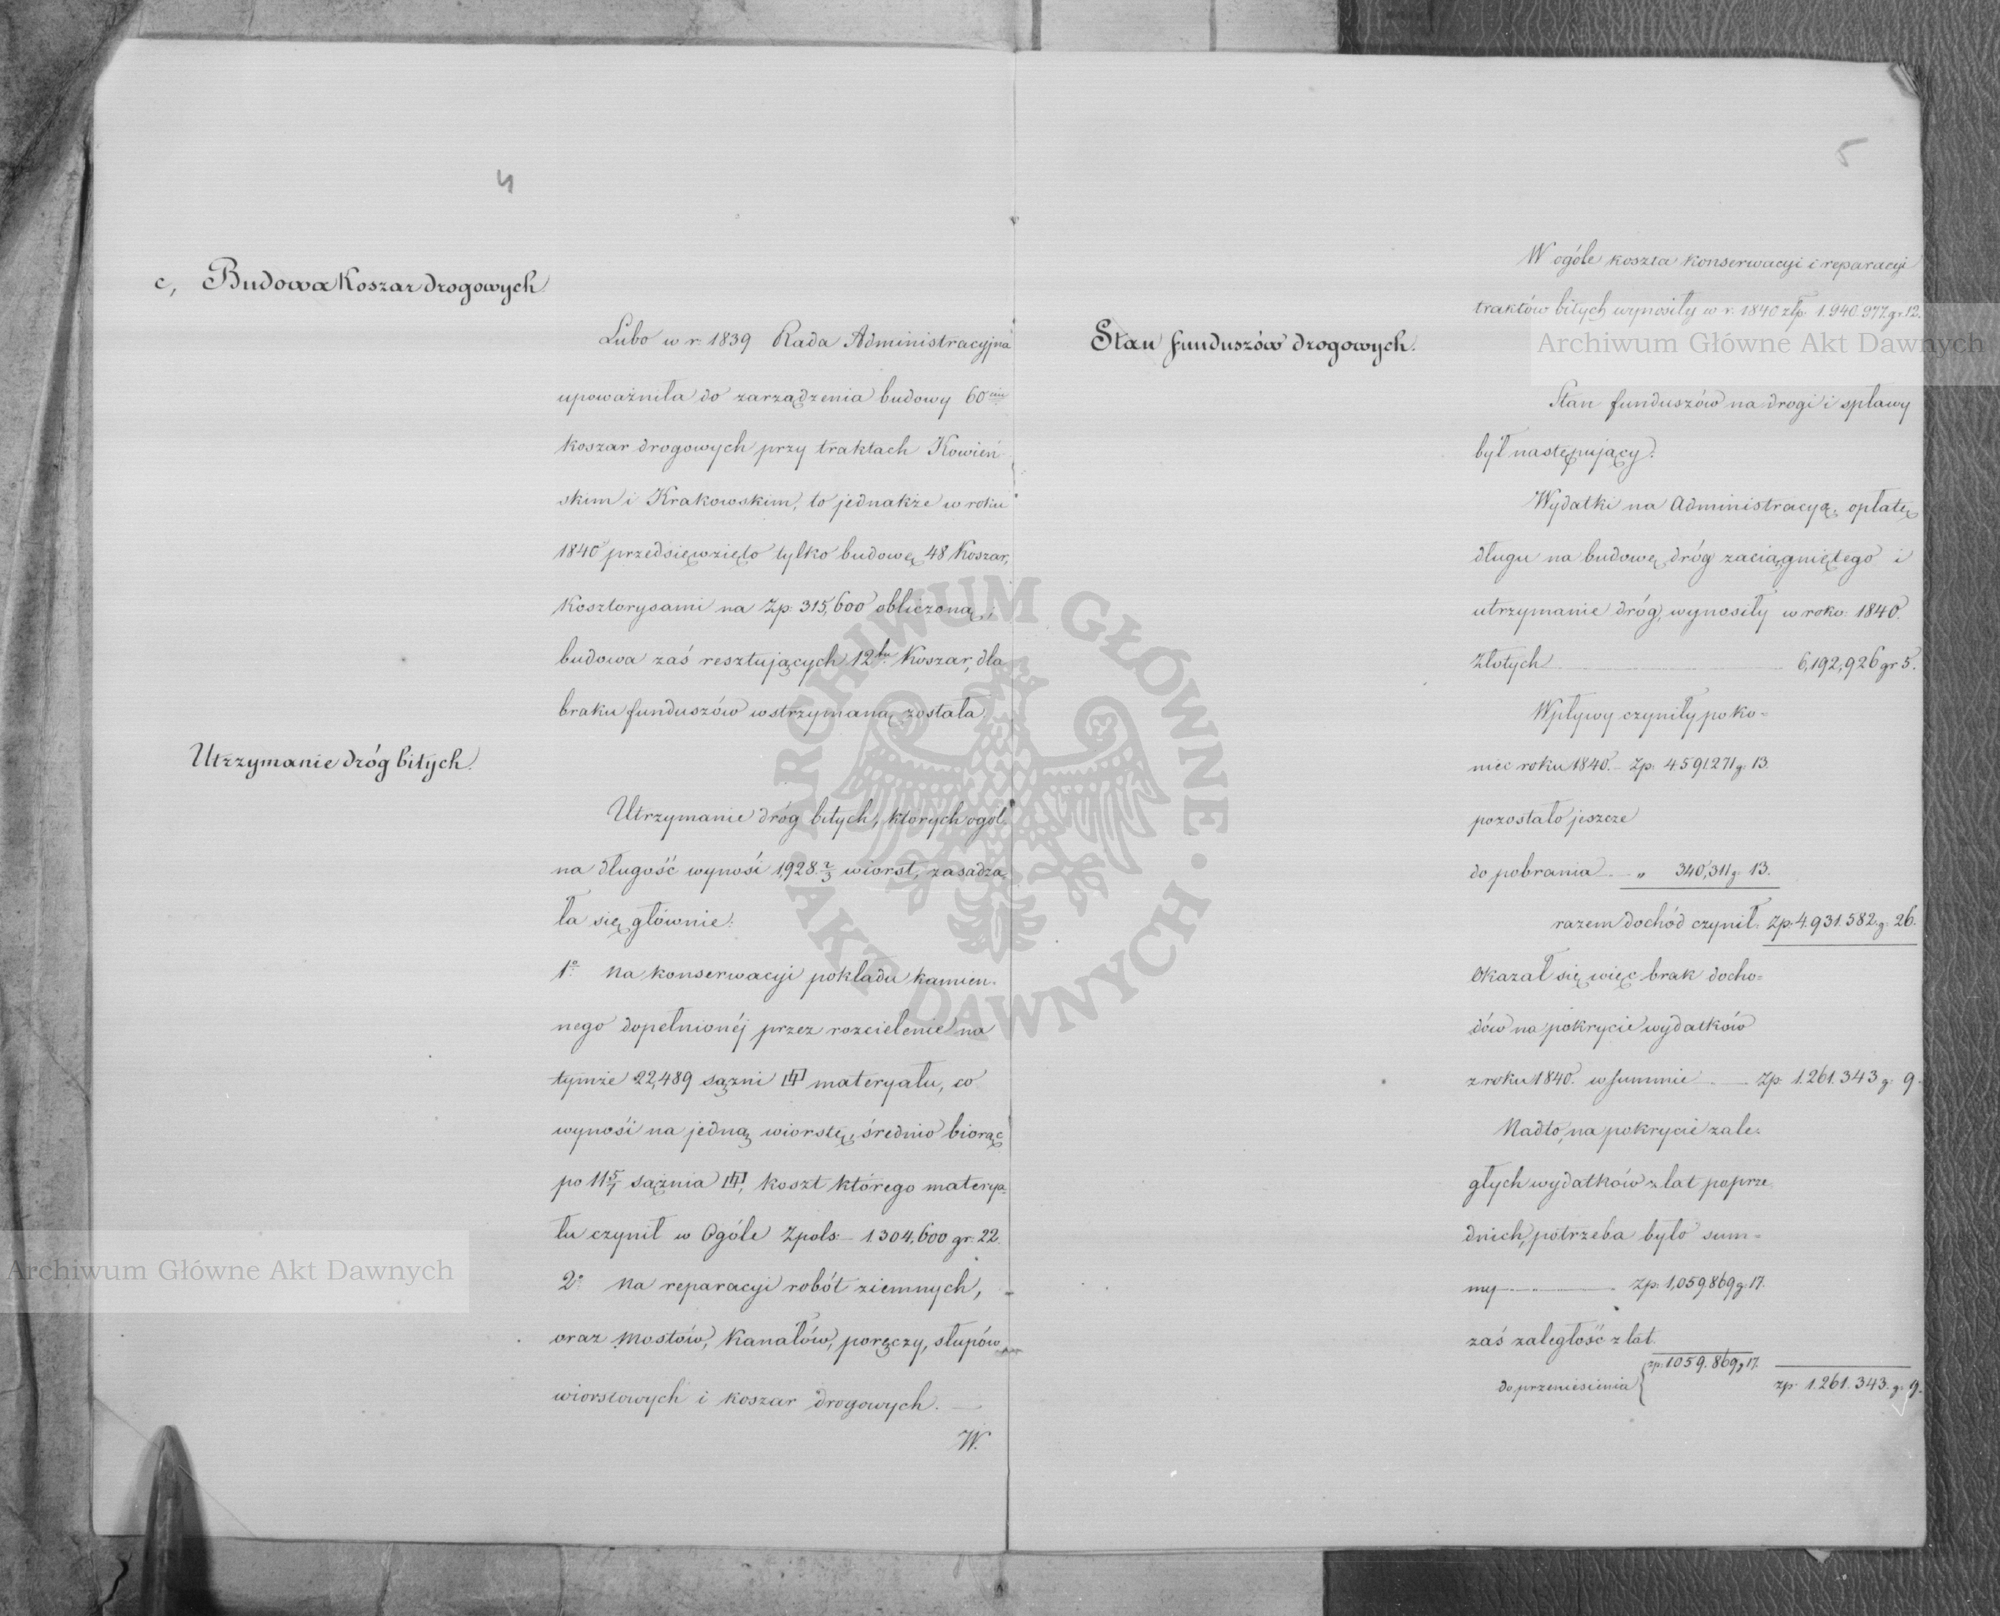 4
c, Budowa Koszar drogowych
Lubo w r. 1839 Rada Administracyjna
upoważniła do zarządzenia budowy 60ciu
koszar drogowych przy traktach Kowień
skim i Krakowskim, to jednakże w roku
1840 przedsięwzięto tylko budowę 48 Koszar,
Kosztorysami na Zp: 315,600 obliczoną i
budowa zaś resztujących 12tu Koszar, dla
braku funduszów wstrzymaną została
Utrzymanie dróg bitych.
Utrzymanie dróg bitych, których ogól
na długość wynosi 1,928 2/3 wiorst, zasadza
ła się głównie:
1o Na konserwacyi pokładu kamien-
nego dopełnionéj przez rozcielenie na
tymże 22,489 sążni materyału, co
wynosi na jedną wiorstę, średnio biorąc
po 11 5/7 sążnia koszt którego materya-
łu czynił w Ogóle Zpols:- 1.304,600 gr: 22.
2o Na reparacyi robót ziemnych,
oraz Mostów, Kanałów, poręczy, słupów
wiorstowych i koszar drogowych. —
W.
5
W ogóle koszta konserwacyi i reparacyi
traktów bitych wynosiły w r. 1840 złp. 1.940.977 gr 12.
Stan funduszów drogowych.
Stan funduszów na drogi i spławy
był następujący:
Wydatki na Administracyą, opłatę
długu na budowę dróg zaciągniętego i
utrzymanie dróg, wynosiły w roku 1840
Złotych 6,192,926 gr 5.
Wpływy czyniły po ko-
niec roku 1840. - Zp: 4.591.271 g: 13.
pozostało jeszcze
do pobrania — „ 340,311 g: 13.
razem dochód czynił: Zp. 4.931.582. g: 26.
Okazał się więc brak docho-
dów na pokrycie wydatków
z roku 1840. w summie — Zp: 1.261.343 g: 9.
Nadto, na pokrycie zale-
głych wydatków z lat poprze
dnich, potrzeba było sum-
my — Zp: 1,059.869 g: 17.
zaś zaległość z lat
do przeniesienia { zp: 1059.869 g 17. zp: 1.261.343. g: 9.
Archiwum Główne Akt Dawnych
Archiwum Główne Akt Dawnych
ARCHIWUM GŁÓWNE AKT DAWNYCH